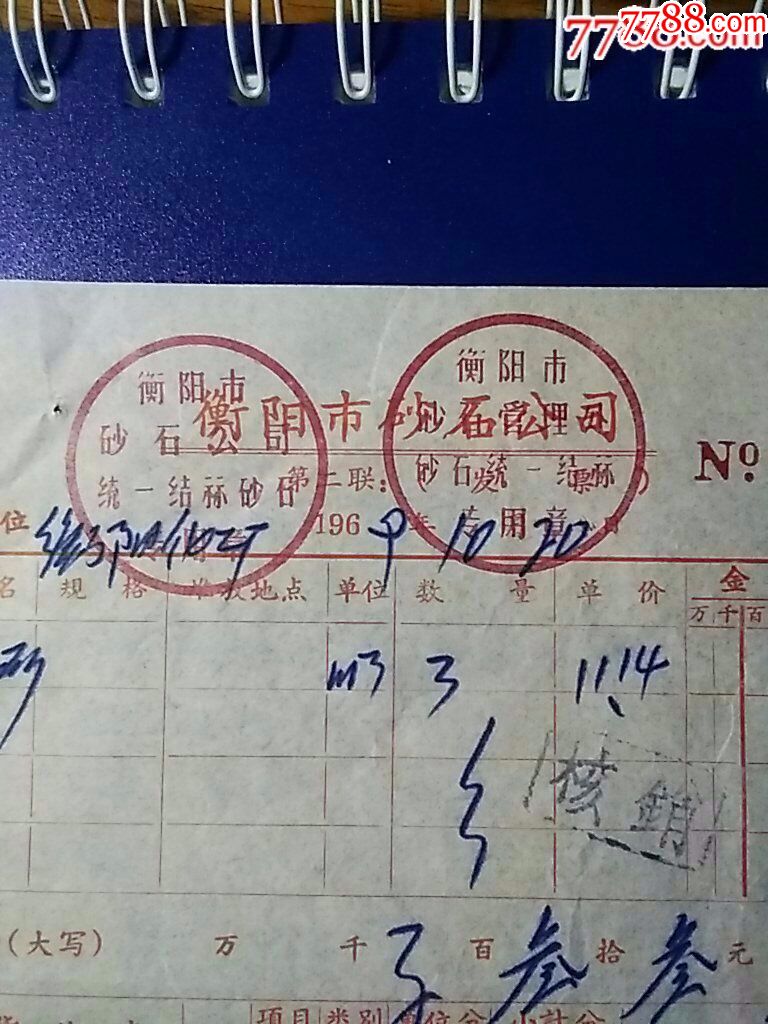 7788.com
7788.com
衡阳市
砂石公司
统一结𥙿砂石
衡阳市
砂石管理
砂石统一结𥙿
专用章
衡阳市砂石公司 No.
第二联:(发票)
位 1969年10月20日
名 规格 堆放地点 单位 数量 单价 金
万 千 百
M3 3 11.14
核销
(大写) 万 千 百 叁 拾 叁 元
项目 类别 单位分 小計分